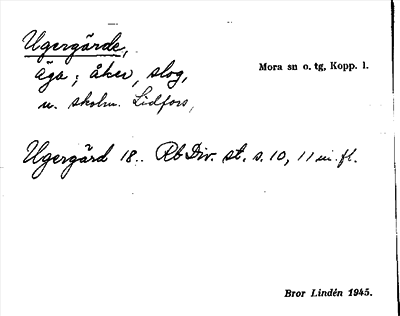 Ugergärde,
äga; åker, slog,
Mora sn o. tg, Kopp. l.
n. skolan. Lidfors,
Ugergärd 18.. Rb Div. st. s. 10, 11 m. fl.
Bror Lindén 1945.